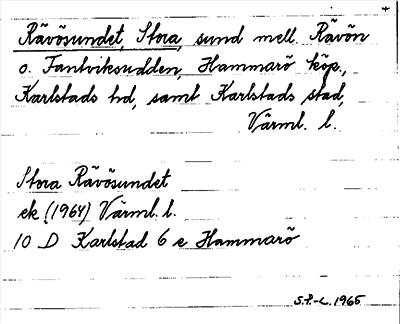 Rävösundet, Stora, sund mell. Rävön
o. Fantviksudden, Hammarö köp.,
Karlstads hd, samt Karlstads stad,
Värml. l.
Stora Rävösundet
ek (1964) Värml. l.
10 D Karlstad 6 e Hammarö
S.P.-L. 1965